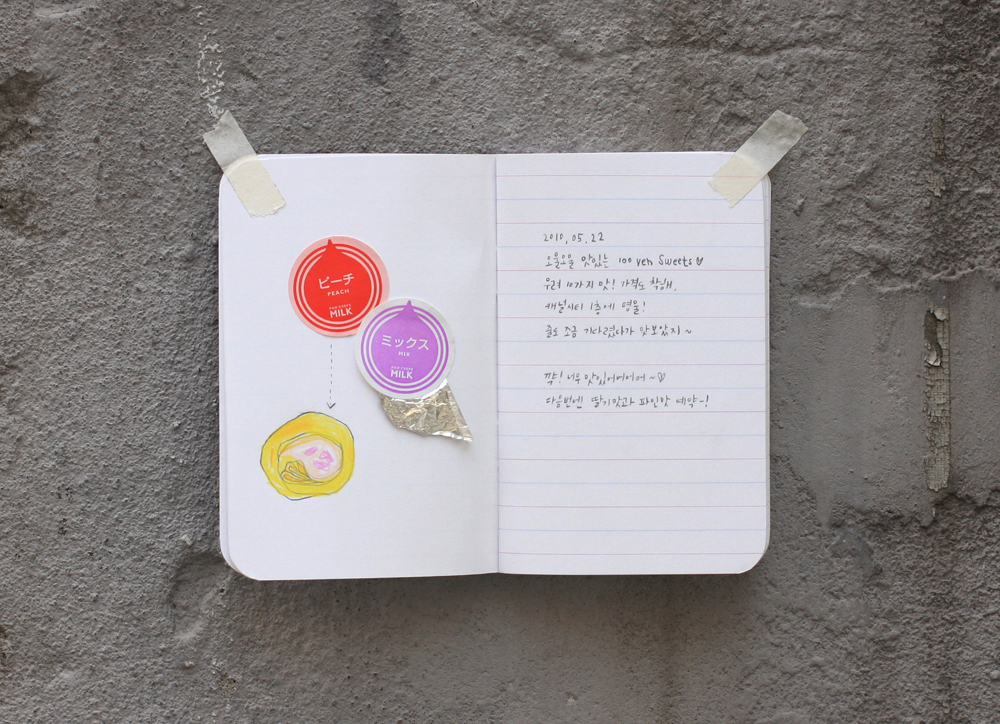 ピーチ
PEACH
MILK
ミックス
MIX
MILK
2010. 05. 22
오물오물 맛있는 100 yen Sweets♡
무려 10가지 맛! 가격도 착해.
캐널시티 1층에 명물!
줄도 조금 기다렸다가 맛보았지~
꺅! 너무 맛있어베어어어~♡
다음번엔 딸기맛과 파인맛 예약~!